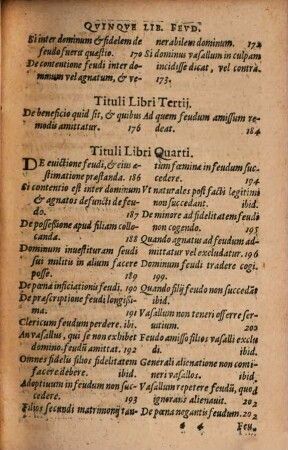 QVINQVE LIB. FEVD.
Si inter dominum & fidelem de
feudo fuerit quæstio. 170
De contentione feudi inter do-
minum vel agnatum, & ve-
nerabilem dominum. 172
Si dominus vasallum in culpam
incidisse dicat, vel contrà.
173.
Tituli Libri Tertij.
De beneficio quid sit, & quibus
modis amittatur. 176
Ad quem feudum amissum re-
deat. 184
Tituli Libri Quarti.
DE euictione feudi, & eius æ-
stimatione præstanda. 186
Si contentio est inter dominum
& agnatos defuncti de feu-
do. 187
De possessione apud filiam collo-
canda. 188
Dominum inuestituram feudi
sui militis in alium facere
posse. 189
De pœna inficiationis feudi. 190
De præscriptione feudi longissi-
ma. 191
Clericum feudum perdere. ibi.
An vasallus, qui se non exhibet
domino, feudũ amittat. 192
Omnes fidelu filios fidelitatem
facere debere. ibid.
Adoptiuum in feudum non suc-
cedere. 193
Filios secundi matrimonij tan-
tum fœmina in feudum suc-
cedere. 194
Vt naturales post facti legitimi
non succedant. ibid.
De minore ad fidelitatem feudi
non cogendo. 195
Quando agnatus ad feudum ad-
mittatur vel excludatur. 196
Dominum feudi tradere cogi.
199.
Quando filij feudo non succedãt
ibid.
Vasallum non teneri offerre ser-
uitium. 200
Feudo amisso filios vasalli exclu
di. ibid.
Generali alienatione non conti-
neri vasallos. ibid.
Vasallum repetere feudũ, quod
ignorans alienauit. 202
De pœna negantis feudum. 202
Feu.